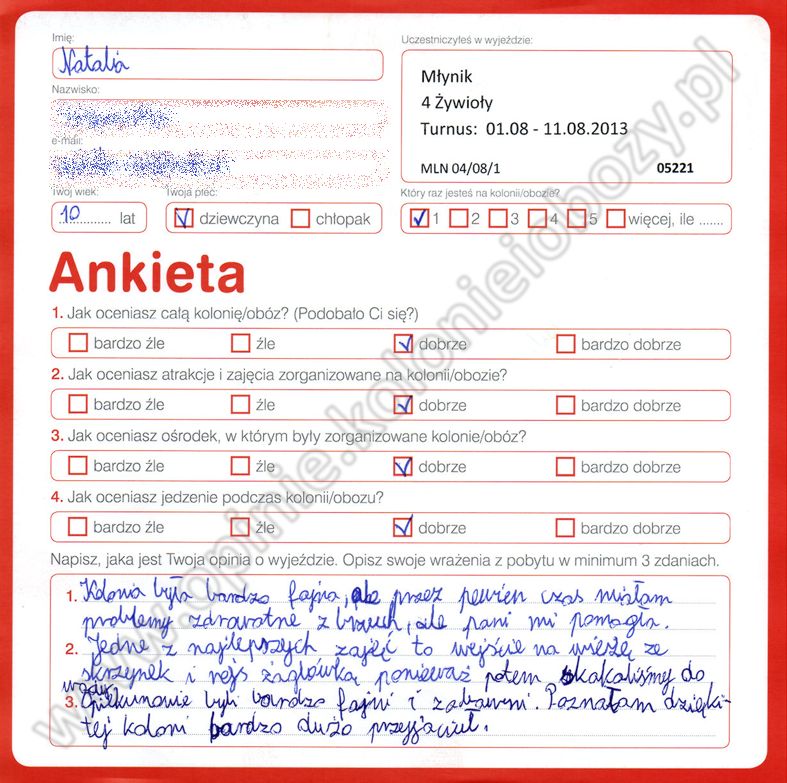 Imię:
Natalia
Nazwisko:
e-mail:
Twój wiek:
10 lat
Twoja płeć:
dziewczyna chłopak
Uczestniczyłeś w wyjeździe:
Młynik
4 Żywioły
Turnus: 01.08 - 11.08.2013
MLN 04/08/1 05221
Który raz jesteś na kolonii/obozie?
1 2 3 4 5 więcej, ile .......
Ankieta
1. Jak oceniasz całą kolonię/obóz? (Podobało Ci się?)
bardzo źle źle dobrze bardzo dobrze
2. Jak oceniasz atrakcje i zajęcia zorganizowane na kolonii/obozie?
bardzo źle źle dobrze bardzo dobrze
3. Jak oceniasz ośrodek, w którym były zorganizowane kolonie/obóz?
bardzo źle źle dobrze bardzo dobrze
4. Jak oceniasz jedzenie podczas kolonii/obozu?
bardzo źle źle dobrze bardzo dobrze
Napisz, jaka jest Twoja opinia o wyjeździe. Opisz swoje wrażenia z pobytu w minimum 3 zdaniach.
1. Kolonia była bardzo fajna, ale przez pewien czas miałam
problemy zdrowotne z , ale pani mi pomogła.
2. Jedne z najlepszych zajęć to wejście na wieżę ze
skrzynek i rejs żaglówką ponieważ potem skakaliśmy do
wody.
3. Opiekunowie byli bardzo fajni i . Poznałam dzięki-
tej koloni bardzo dużo przyjaciuł.
www.opinie.kolonieiobozy.pl